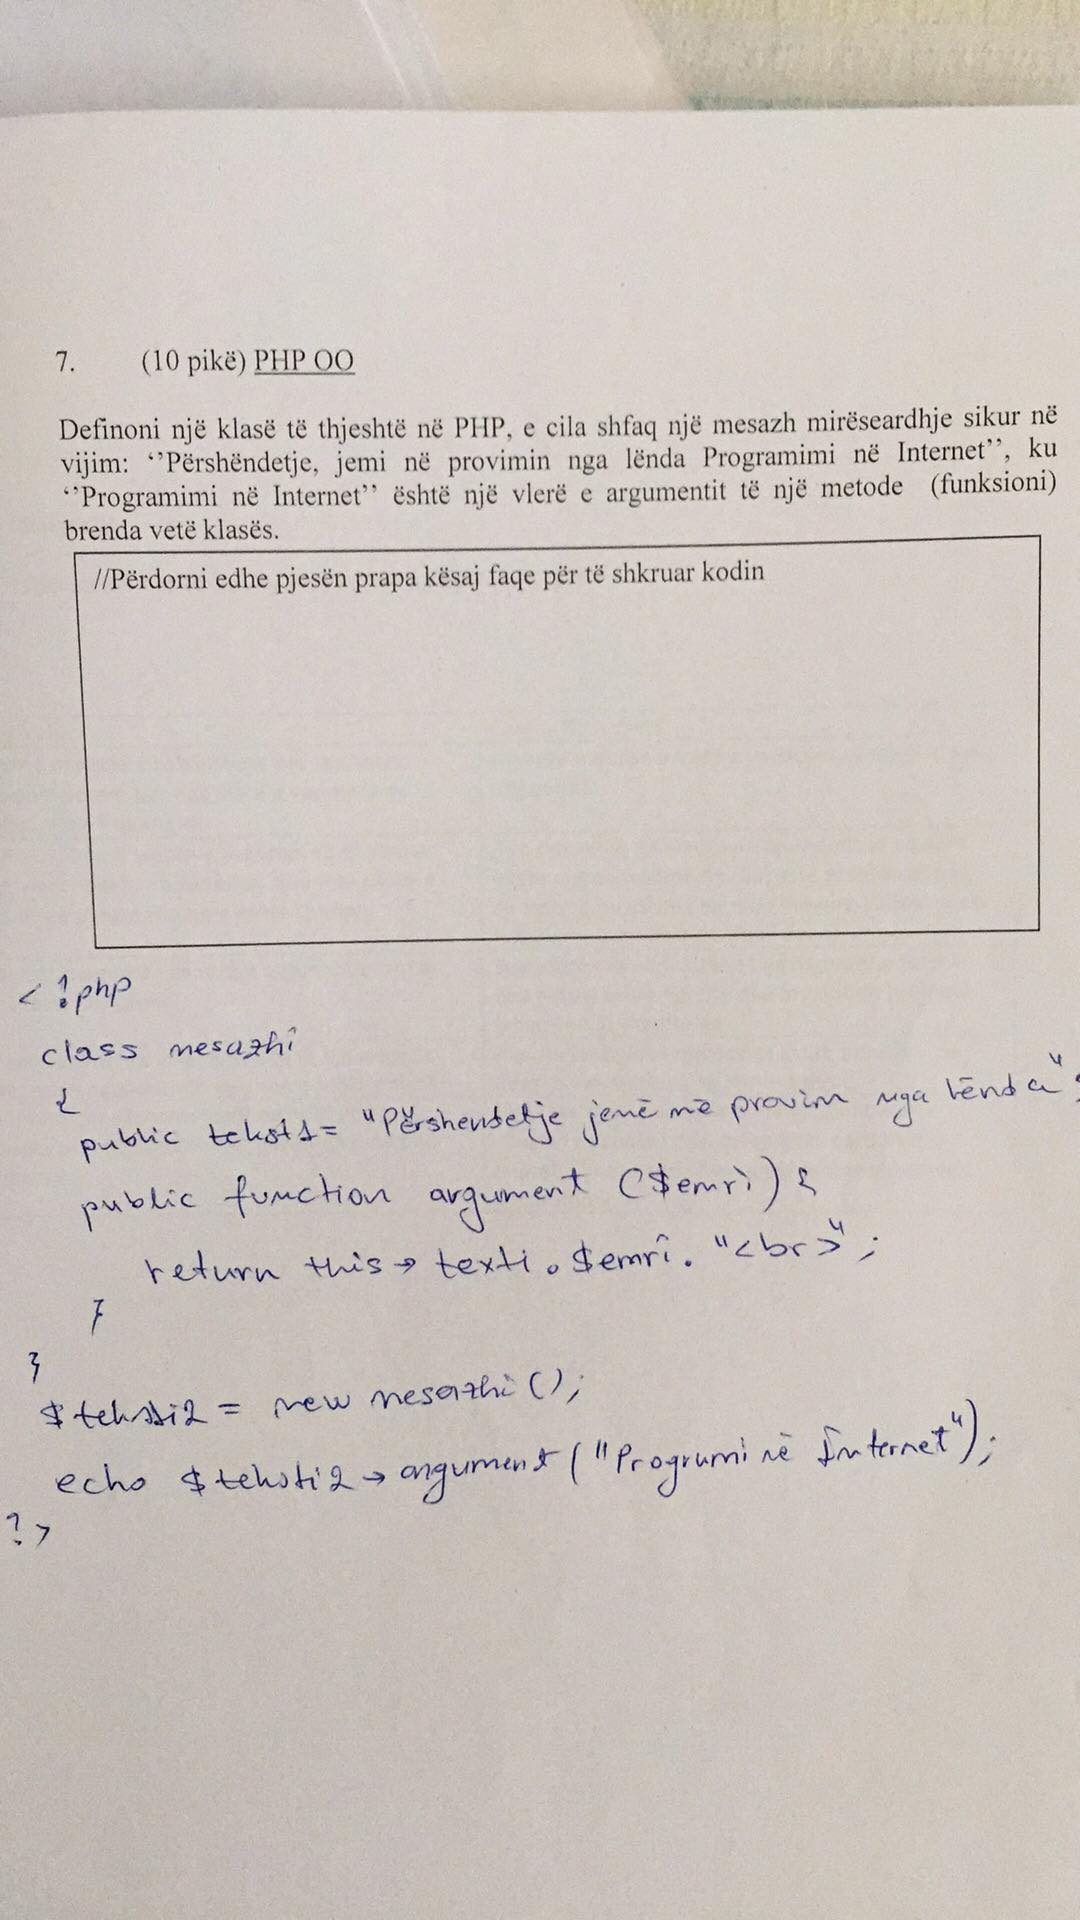 7. (10 pikë) PHP OO
Definoni një klasë të thjeshtë në PHP, e cila shfaq një mesazh mirëseardhje sikur në
vijim: ‘’Përshëndetje, jemi në provimin nga lënda Programimi në Internet’’, ku
‘’Programimi në Internet’’ është një vlerë e argumentit të një metode (funksioni)
brenda vetë klasës.
//Përdorni edhe pjesën prapa kësaj faqe për të shkruar kodin
<?php
class mesazhi
{
public tekst1= "Përshendetje jemë në provim nga lënda";
public function argument ($emri) {
return this→ texti . $emri. "<br>";
}
}
$teksti2 = new mesazhi ();
echo $teksti2 → argument ("Programi në Internet");
?>